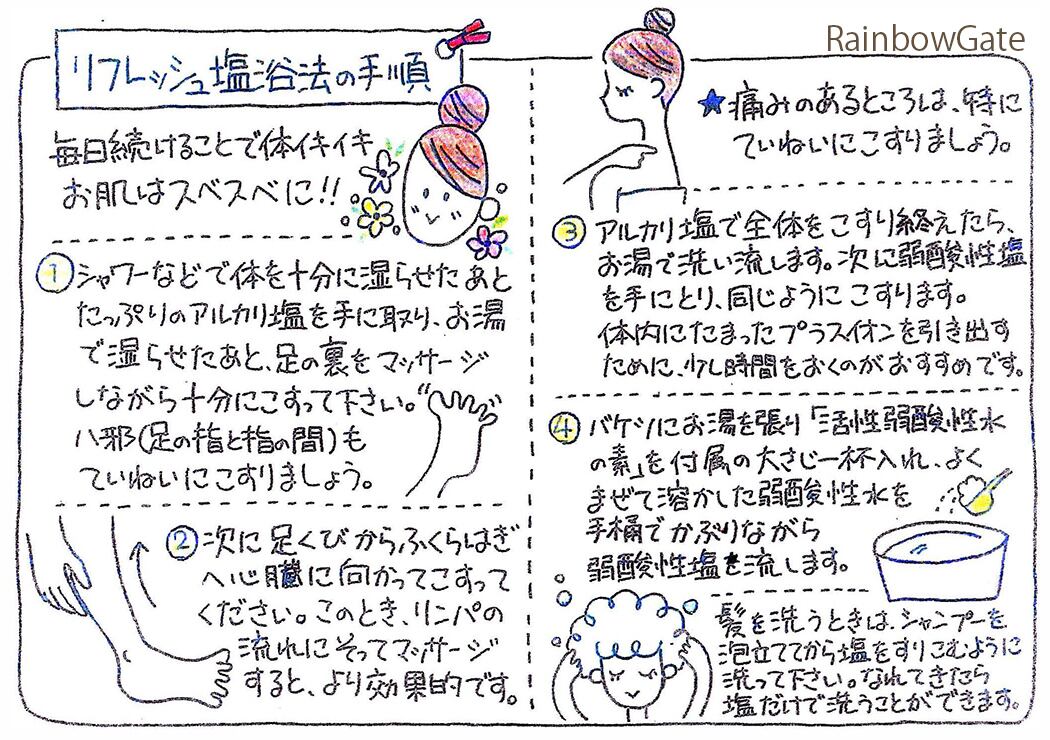 RainbowGate
リフレッシュ塩浴法の手順
毎日続けることで体イキイキ
お肌はスベスベに!!
① シャワーなどで体を十分に湿らせたあと
たっぷりのアルカリ塩を手に取り、お湯
で湿らせたあと、足の裏をマッサージ
しながら十分にこすって下さい。"
八邪(足の指と指の間)も
ていねいにこすりましょう。
② 次に足くびからふくらはぎ
へ心臓に向かってこすって
ください。このとき、リンパの
流れにそってマッサージ
すると、より効果的です。
★痛みのあるところは、特に
ていねいにこすりましょう。
③ アルカリ塩で全体をこすり終えたら、
お湯で洗い流します。次に弱酸性塩
を手にとり、同じようにこすります。
体内にたまったプラスイオンを引き出す
ために、少し時間をおくのがおすすめです。
④ バケツにお湯を張り「活性弱酸性水
の素」を付属の大さじ一杯入れ、よく
まぜて溶かした弱酸性水を
手桶でかぶりながら
弱酸性塩を流します。
髪を洗うときは、シャンプーを
泡立ててから塩をすりこむように
洗って下さい。なれてきたら
塩だけで洗うことができます。